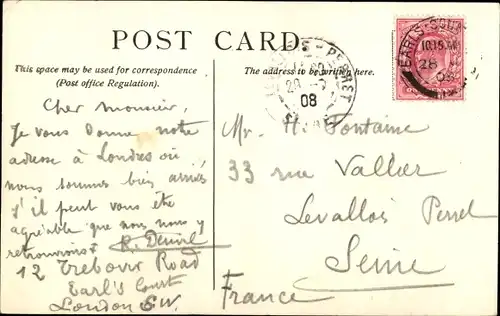 POST CARD.
This space may be used for correspondence
(Post office Regulation).
The address to be written here.
EARLS COU
10.15 AM
28
08
PERRET
08
Cher monsieur,
Je vous donne notre
adresse à Londres où
nous sommes bien arrivés
s'il peut vous être
agréable que nous nous y
retrouvions
12 Trebovir Road
Earl's Court
London S.W.
Mr. H. Fontaine
33 rue Vallier
Levallois Perret
Seine
France